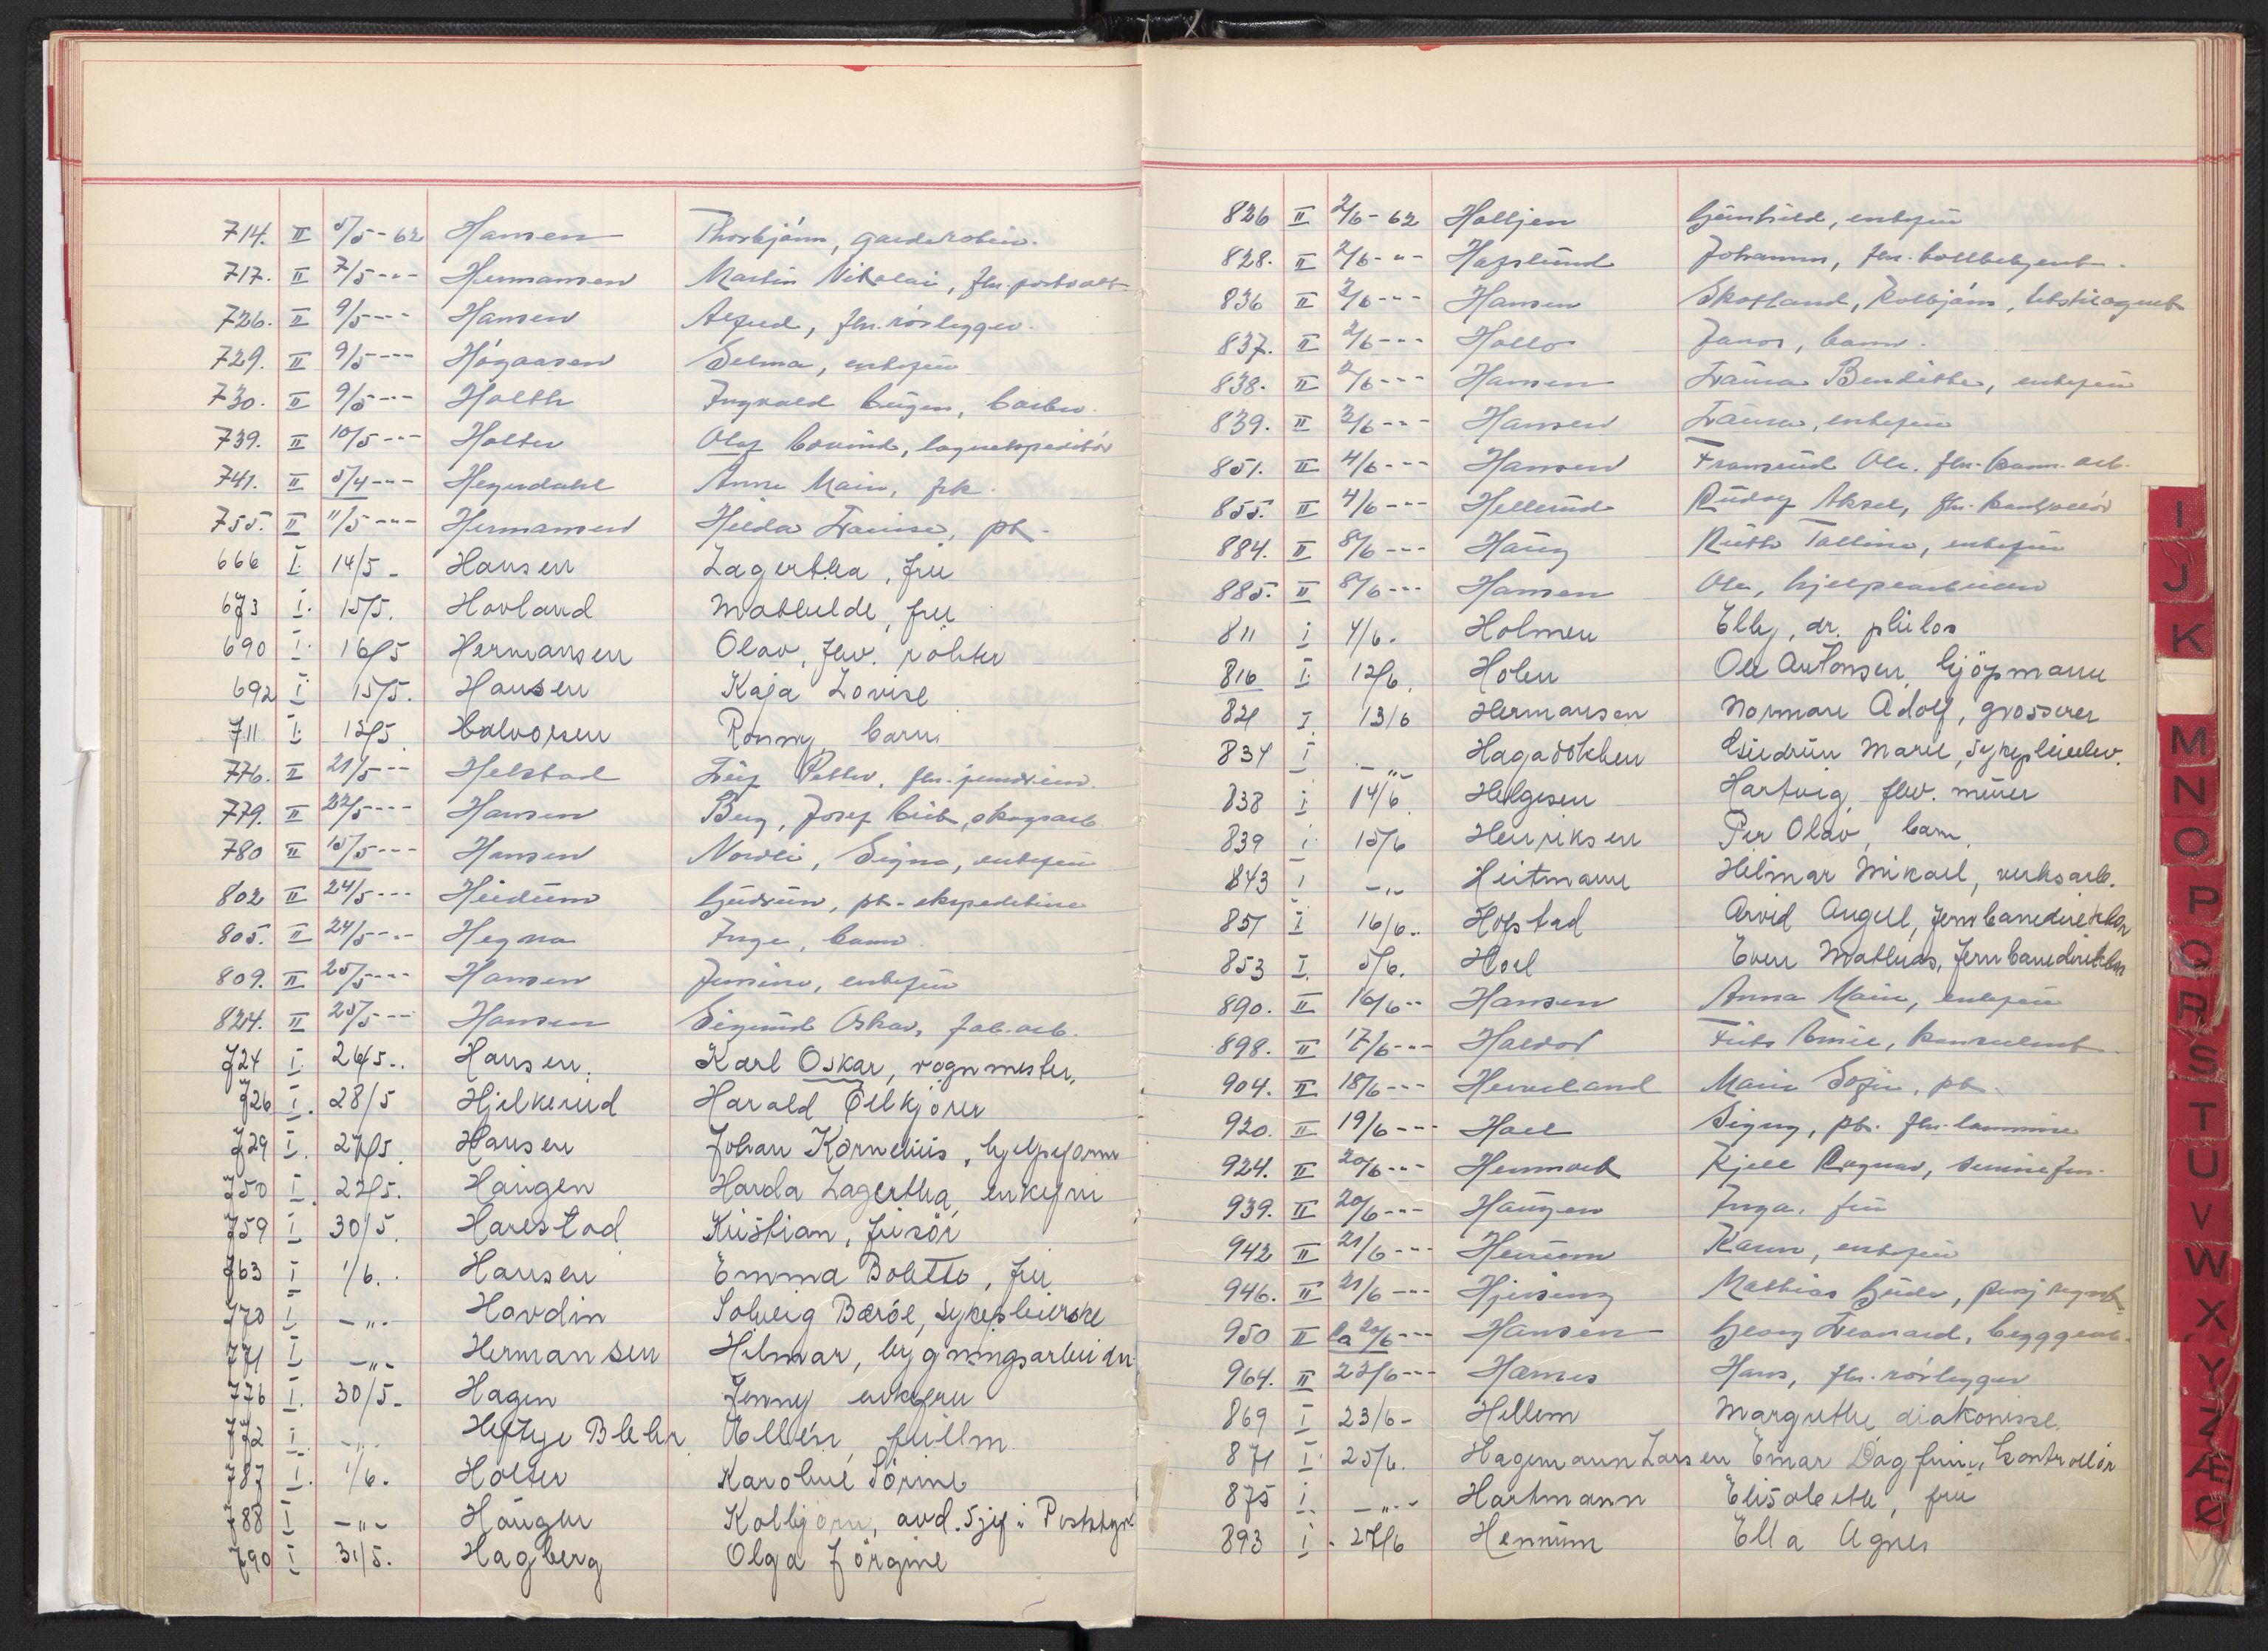 714. II 5/5-62 Hansen Thorbjørn, garderobev.
717. II 7/5 -"- Hermansen Martin Nikolai, fhv. postvakt
726. II 9/5 -"- Hansen Alfred, fhv. rørlegger.
729. II 9/5 -"- Høgaasen Selma, enkefru
730. II 9/5 -"- Holth Ingvald Eugen,
739. II 10/5 -"- Holter Olaf Edvind, lagerekspeditør
741. II 5/4 -"- Heyerdahl Anne Marie, frk.
755. II 11/5 -"- Hermansen Hilda Louise, pk.
666 I 14/5 - Hansen Lagertha, fru
673 I. 15/5. Hovland Mathilde, fru
690 I. 16/5 Hermansen Olav, fhv. rokter
692 I 15/5. Hansen Kaja Lovise
711 I. 12/5. Halvorsen Ronny barn
776. II 21/5 -"- Helstad Leif Petter, fhv.
779. II 22/5 -"- Hansen Berg, Josef Emil, skogsarb.
780 II 15/5 -"- Hansen Nordli, Signe, enkefru
802 II 24/5 -"- Heidum Gudrun, pk. ekspeditrise
805. II 24/5 -"- Hegna Inge, barn.
809. II 25/5 -"- Hansen Jensine, enkefru
824. II 25/5 -"- Hansen Sigurd Oskar, fab.arb.
724 I. 26/5.. Hansen. Karl Oskar, vognmester,
726 I. 28/5 Hjelkerud Harald Eilkjører
729 I. 27/5. Hansen Johan Kornelius, hjelpeform
750 I. 22/5. Haugen Harda Lagertha, enkefru
759 I 30/5. Harestad Kristian, frisør
763 I 1/6.. Hansen Emma Bolette, fru
770 I. -"- Havdin Solveig Barøe, sykepleierske
771 I -"- Hermansen Hilmar, bygningsarbeider
776 I. 30/5. Hagen Jenny enkefru
772 I. -"- Heftye Blehr Ellen,
787 I. 1/6. Holter Karoline Sørine
788 I -"- Haugen Kolbjørn, avd.sjef i Poststyr
790 I 31/5. Hagberg Olga Jørgine
826 II 2/6-62 Holljen Gunhild, enkefru
828. II 2/6 -"- Haglund Johannes, fhv. tollbetjent.
836 II 2/6 -"- Hansen Skotland, Kolbjørn, tekstilagent
837. II 2/6 -"- Hollos Janos, barn.
838. II 2/6 -"- Hansen Laura Bendikte, enkefru
839. II 3/6 -"- Hansen Laura, enkefru
851. II 4/6 -"- Hansen Framrud Ole. fhv. komm. arb.
855. II 4/6 -"- Hellerud Rudolf Aksel, fhv. kontrollør
884. II 8/6 -"- Haug Ruth Talline, enkefru
885. II 8/6 -"- Hansen Ole, hjelpearbeider
811 I 4/6. Holmen Elly, dr. philos
816 I. 12/6. Holen Ole Antonsen, kjøpmann
821 I. 13/6 Hermansen Norman Adolf, grosserer
834 I -"- Hagabakken Gudrun Marie, sykepleieelev.
838 I. 14/6. Helgesen Hartvig, fhv. murer
839 I 15/6 Henriksen Per Olav, barn.
843 I -"- Heitmann Hilmar Mikael, verksarb.
851 I 16/6. Hofstad Arvid Angell, jernbanedirektør
853 I. 5/6. Hoel Even Mathias, jernbanedirektør
890. II 16/6 -"- Hansen Anna Marie, enkefru
898. II 17/6 -"- Haldor Emil, konsulent.
904. II 18/6 -"- Herreland Marie Sofie, pk.
920. II 19/6 -"- Hall Signy, pk. fhv.
924. II 20/6 -"- Henmark Kjell Ragnar,
939. II 20/6 -"- Haugen Inga, fru
942 II 21/6 -"- Heirum Karen, enkefru
946. II 21/6 -"- Mathias
950 II ca 20/6 -"- Hansen Georg Leonard, byggearb.
964. II 22/6 -"- Hannes Hans, fhv. rørlegger
869 I 23/6 - Hellem Margrethe diakonisse.
871 I. 25/6. Hagemann Larsen Einar Dagfinn, kontrollør
875 I. -"- Hartmann Elisabeth, fru
893 I. 27/6 Hennum Ella Agnes
I
J
K
M
N
O
P
Q
R
S
T
U
V
W
X
Y
Z
Æ
Ø